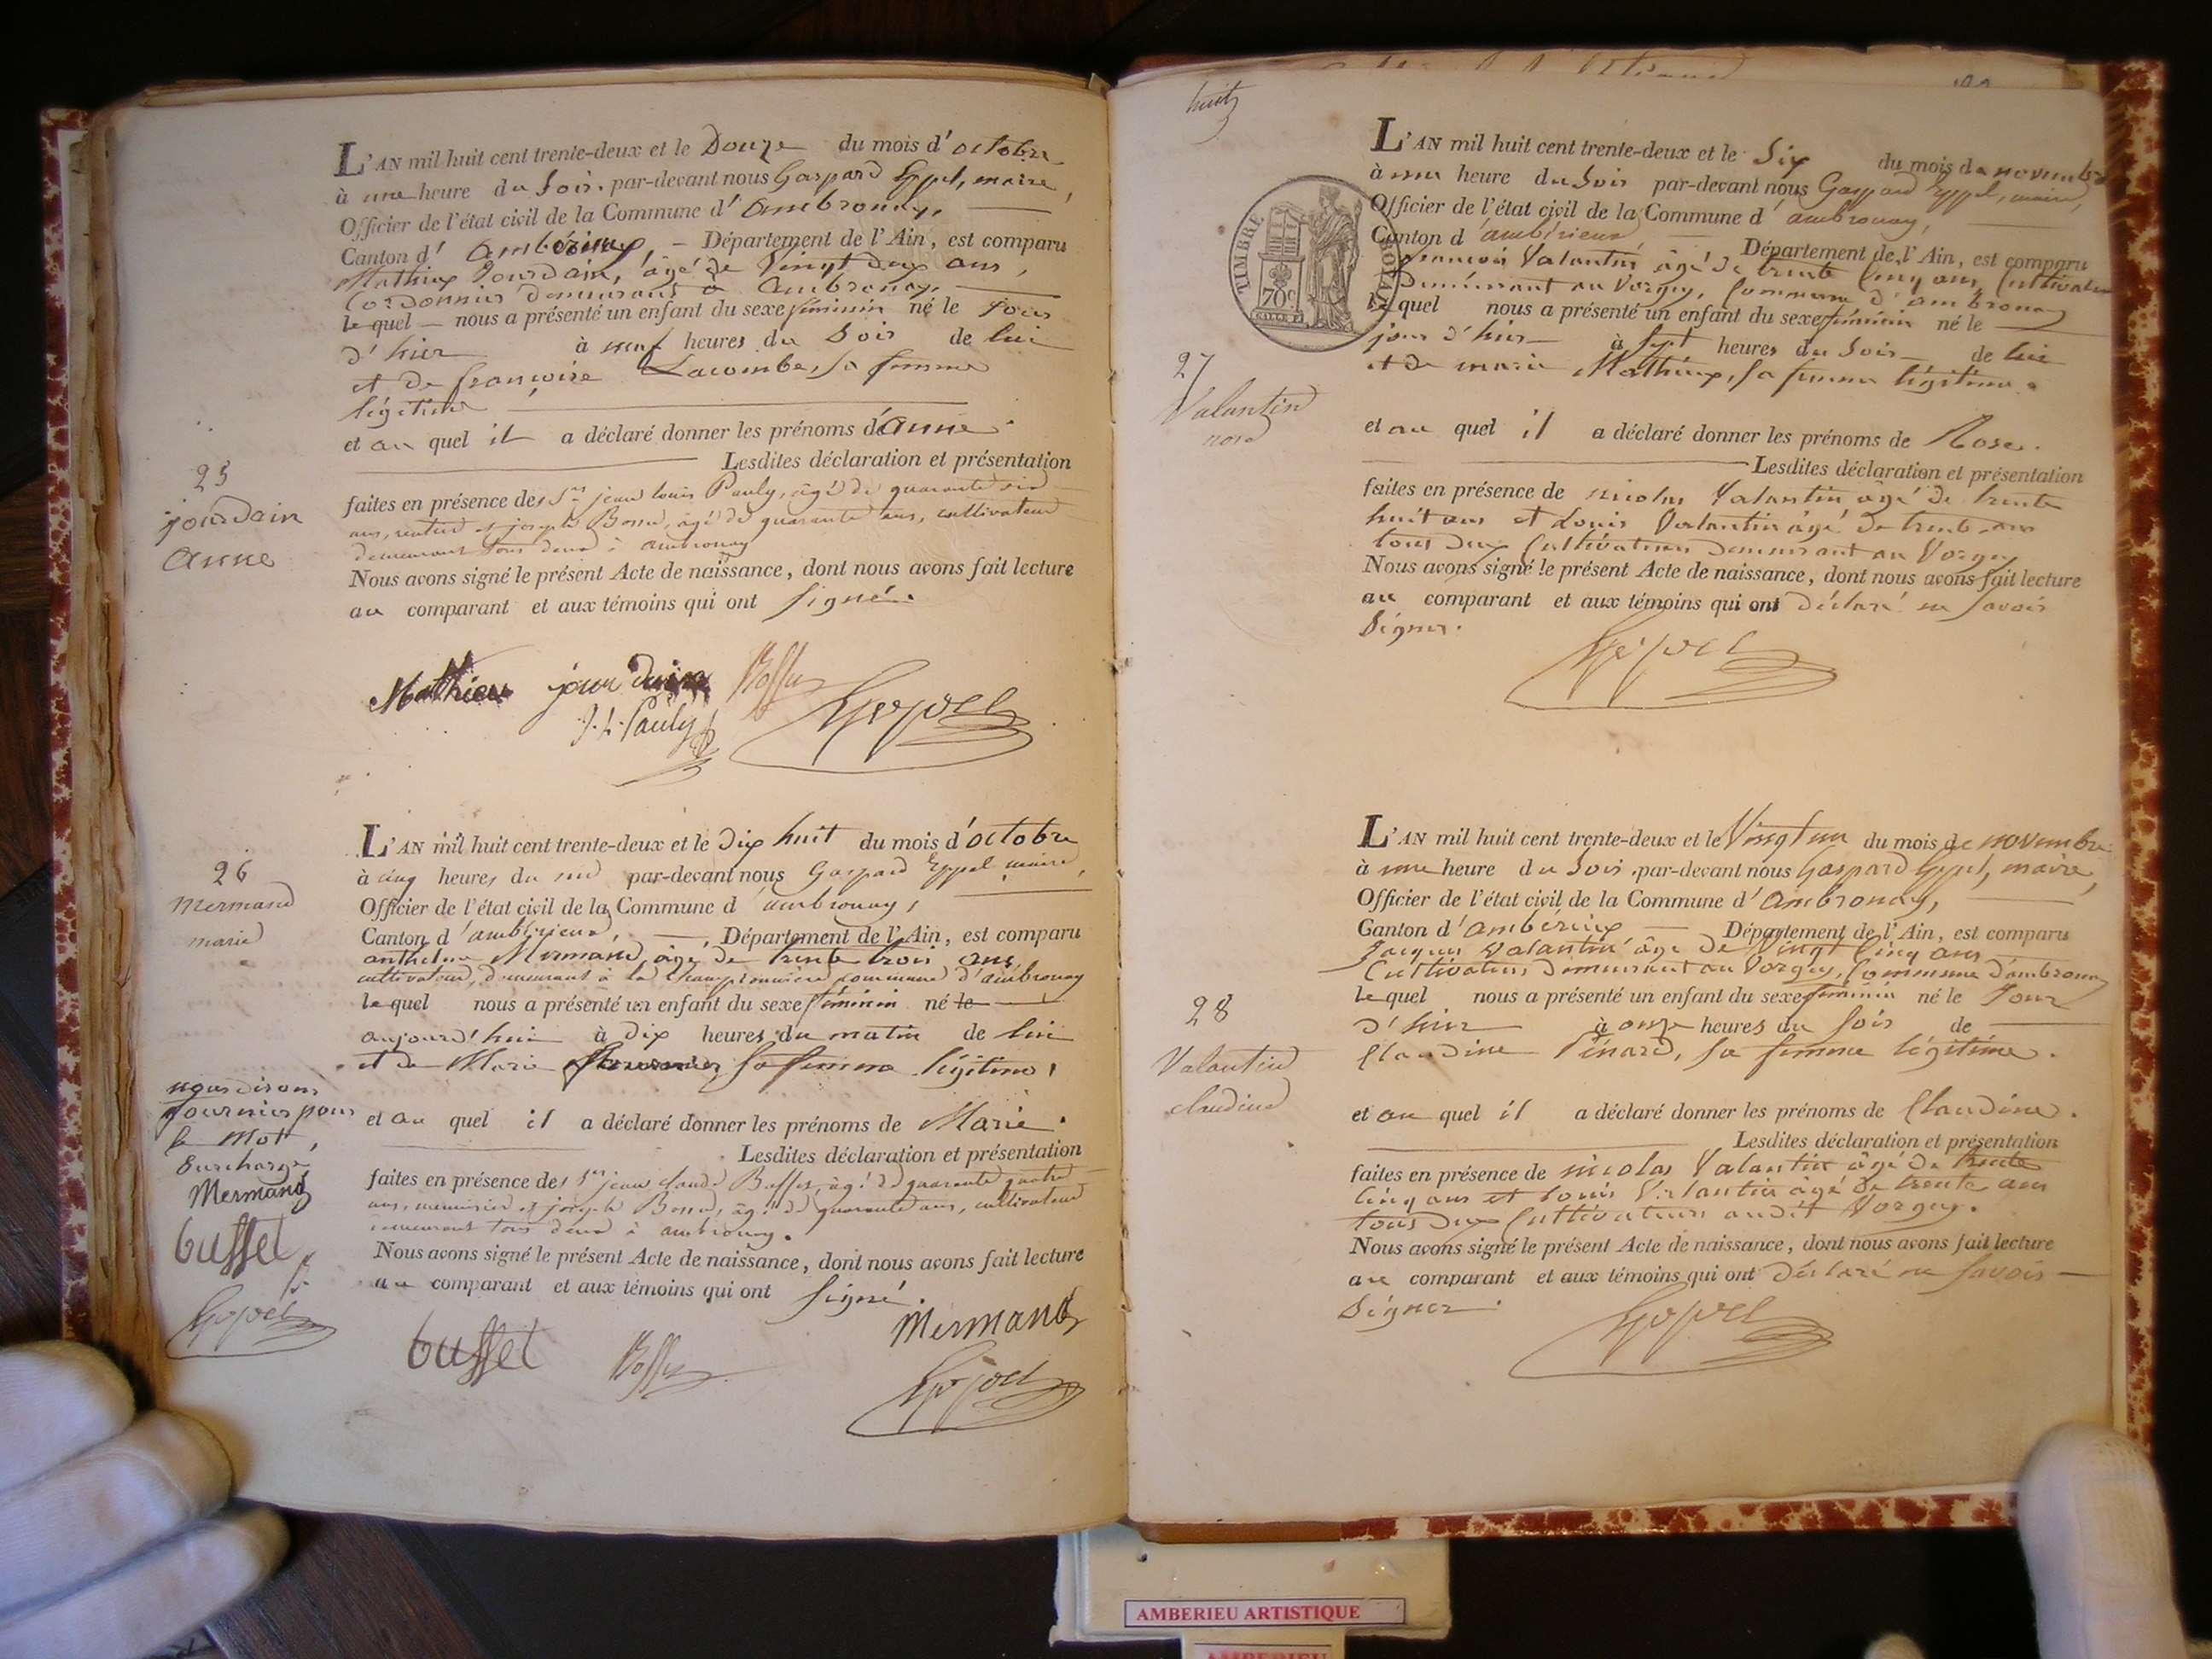 25
jourdain
anne
L'AN mil huit cent trente-deux et le Douze du mois d'octobre
à une heure du Soir par-devant nous Gaspard Eppel, maire,
Officier de l'état civil de la Commune d'ambronay,
Canton d'ambérieux, — Département de l'Ain, est comparu
Mathieu Jourdain, âgé de Vingt deux ans,
Cordonnier demeurant à ambronay,
lequel — nous a présenté un enfant du sexe féminin né le jour
d'hier à neuf heures du Soir de lui
et de françoise Lacombe, sa femme
légitime
et au quel il a déclaré donner les prénoms d'anne.
Lesdites déclaration et présentation
faites en présence des Srs jean louis Pauly, âgé de quarante
ans, rentier et joseph âgé de quarante ans, cultivateur
demeurant tous deux à ambronay
Nous avons signé le présent Acte de naissance, dont nous avons fait lecture
au comparant et aux témoins qui ont signé.
Mathieu jourdain
J. L. Pauly
26
mermand
marie
L'AN mil huit cent trente-deux et le Dix huit du mois d'octobre
à cinq heures du soir par-devant nous Gaspard Eppel maire,
Officier de l'état civil de la Commune d'ambronay,
Canton d'ambérieux, — Département de l'Ain, est comparu
anthelme Mermand, âgé de trente trois ans,
cultivateur, demeurant à la commune d'ambronay
lequel nous a présenté un enfant du sexe féminin né le
aujourd'hui à dix heures du matin de lui
et de Marie sa femme légitime,
et au quel il a déclaré donner les prénoms de Marie.
Lesdites déclaration et présentation
faites en présence des Srs jean claude Buffet, âgé de quarante quatre
ans, menuisier et joseph âgé de quarante ans, cultivateur
demeurant tous deux à ambronay.
Nous avons signé le présent Acte de naissance, dont nous avons fait lecture
au comparant et aux témoins qui ont signé.
nous disons
fournier pour
le mot
Surchargé
Mermand
buffet
Eppel
buffet
Mermand
Eppel
huit
TIMBRE ROYAL
70 c
27
Valantin
rose
L'AN mil huit cent trente-deux et le Six du mois de novembre
à une heure du Soir par-devant nous Gaspard Eppel, maire,
Officier de l'état civil de la Commune d'ambronay,
Canton d'ambérieux Département de l'Ain, est comparu
françois Valantin âgé de trente cinq ans, Cultivateur
Demeurant au Vorgey, Commune d'ambronay
lequel nous a présenté un enfant du sexe féminin né le
jour d'hier à Sept heures du Soir de lui
et de marie Mathieu, sa femme légitime.
et au quel il a déclaré donner les prénoms de Rose.
Lesdites déclaration et présentation
faites en présence de nicolas Valantin âgé de trente
huit ans et Louis Valantin âgé de trente ans
tous deux Cultivateurs demeurant au Vorgey
Nous avons signé le présent Acte de naissance, dont nous avons fait lecture
au comparant et aux témoins qui ont déclaré ne savoir
Signer.
Eppel
28
Valantin
claudine
L'AN mil huit cent trente-deux et le Vingt un du mois de novembre
à une heure du Soir par-devant nous Gaspard Eppel, maire,
Officier de l'état civil de la Commune d'ambronay,
Canton d'ambérieux — Département de l'Ain, est comparu
Jacques Valantin âgé de Vingt Cinq ans
Cultivateur demeurant au Vorgey, Commune d'ambronay
lequel nous a présenté un enfant du sexe féminin né le Jour
d'hier à onze heures du Soir de
Claudine Pénard, sa femme légitime.
et au quel il a déclaré donner les prénoms de Claudine.
Lesdites déclaration et présentation
faites en présence de nicolas Valantin âgé de trente
cinq ans et Louis Valantin âgé de trente ans
tous deux Cultivateurs audit Vorgey.
Nous avons signé le présent Acte de naissance, dont nous avons fait lecture
au comparant et aux témoins qui ont déclaré ne savoir
Signer.
Eppel
AMBERIEU ARTISTIQUE
AMBERIEU